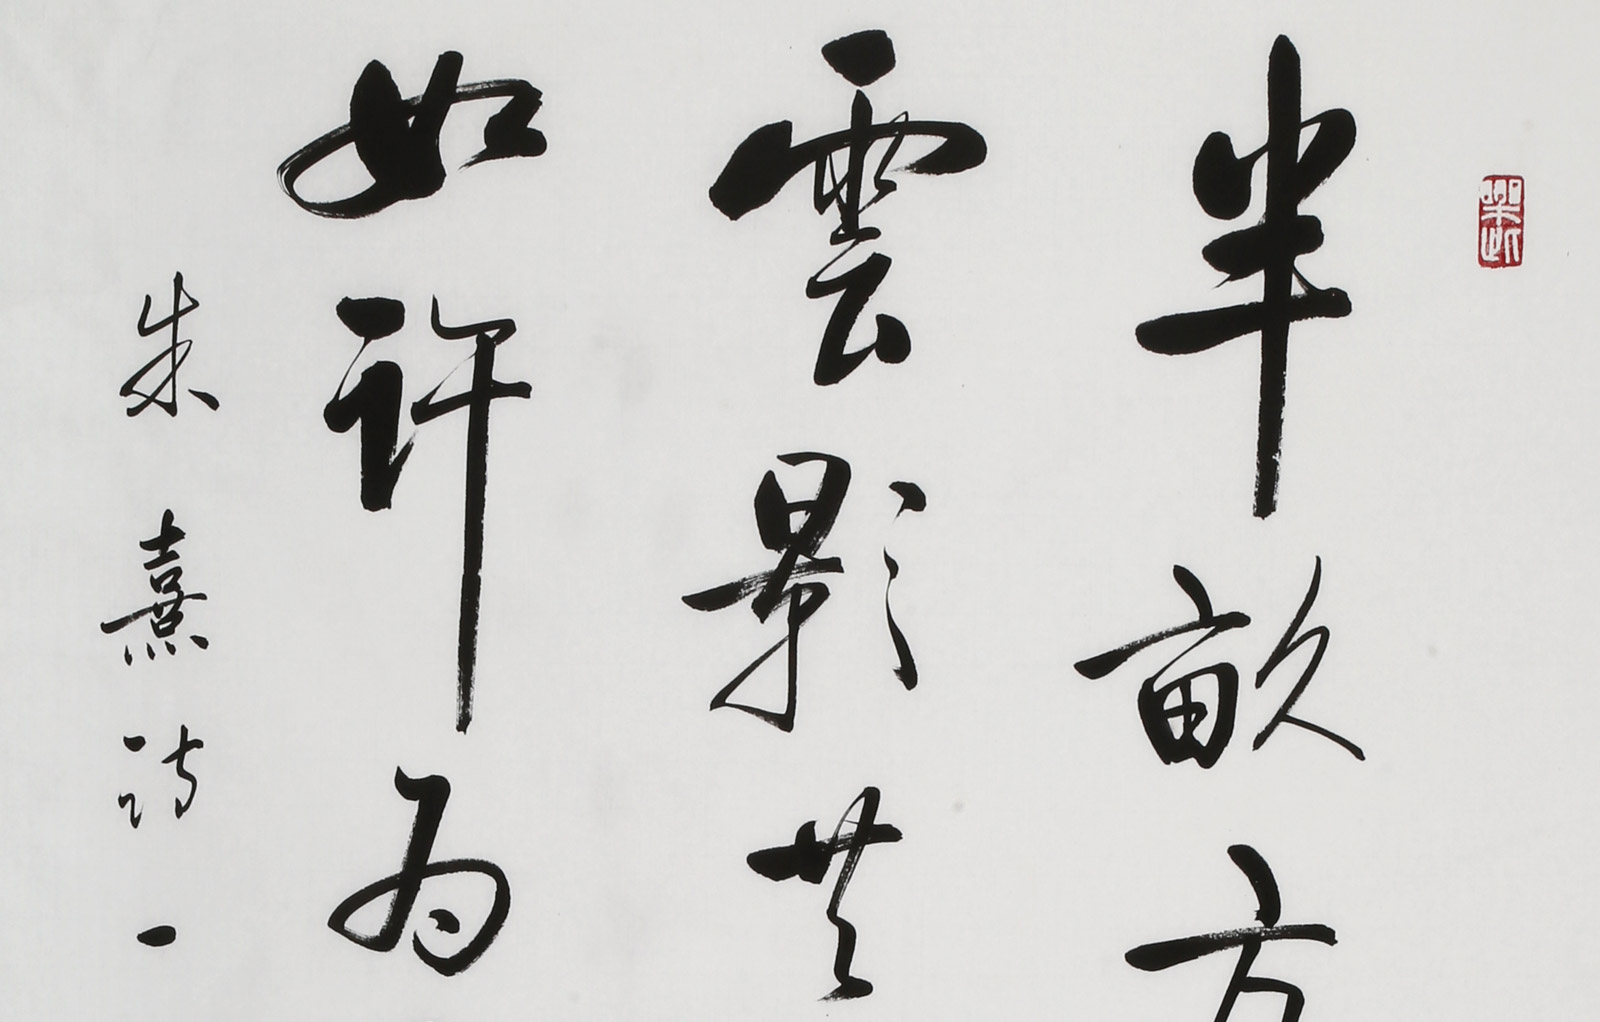 半畝方
雲影共
如許为
朱熹詩一